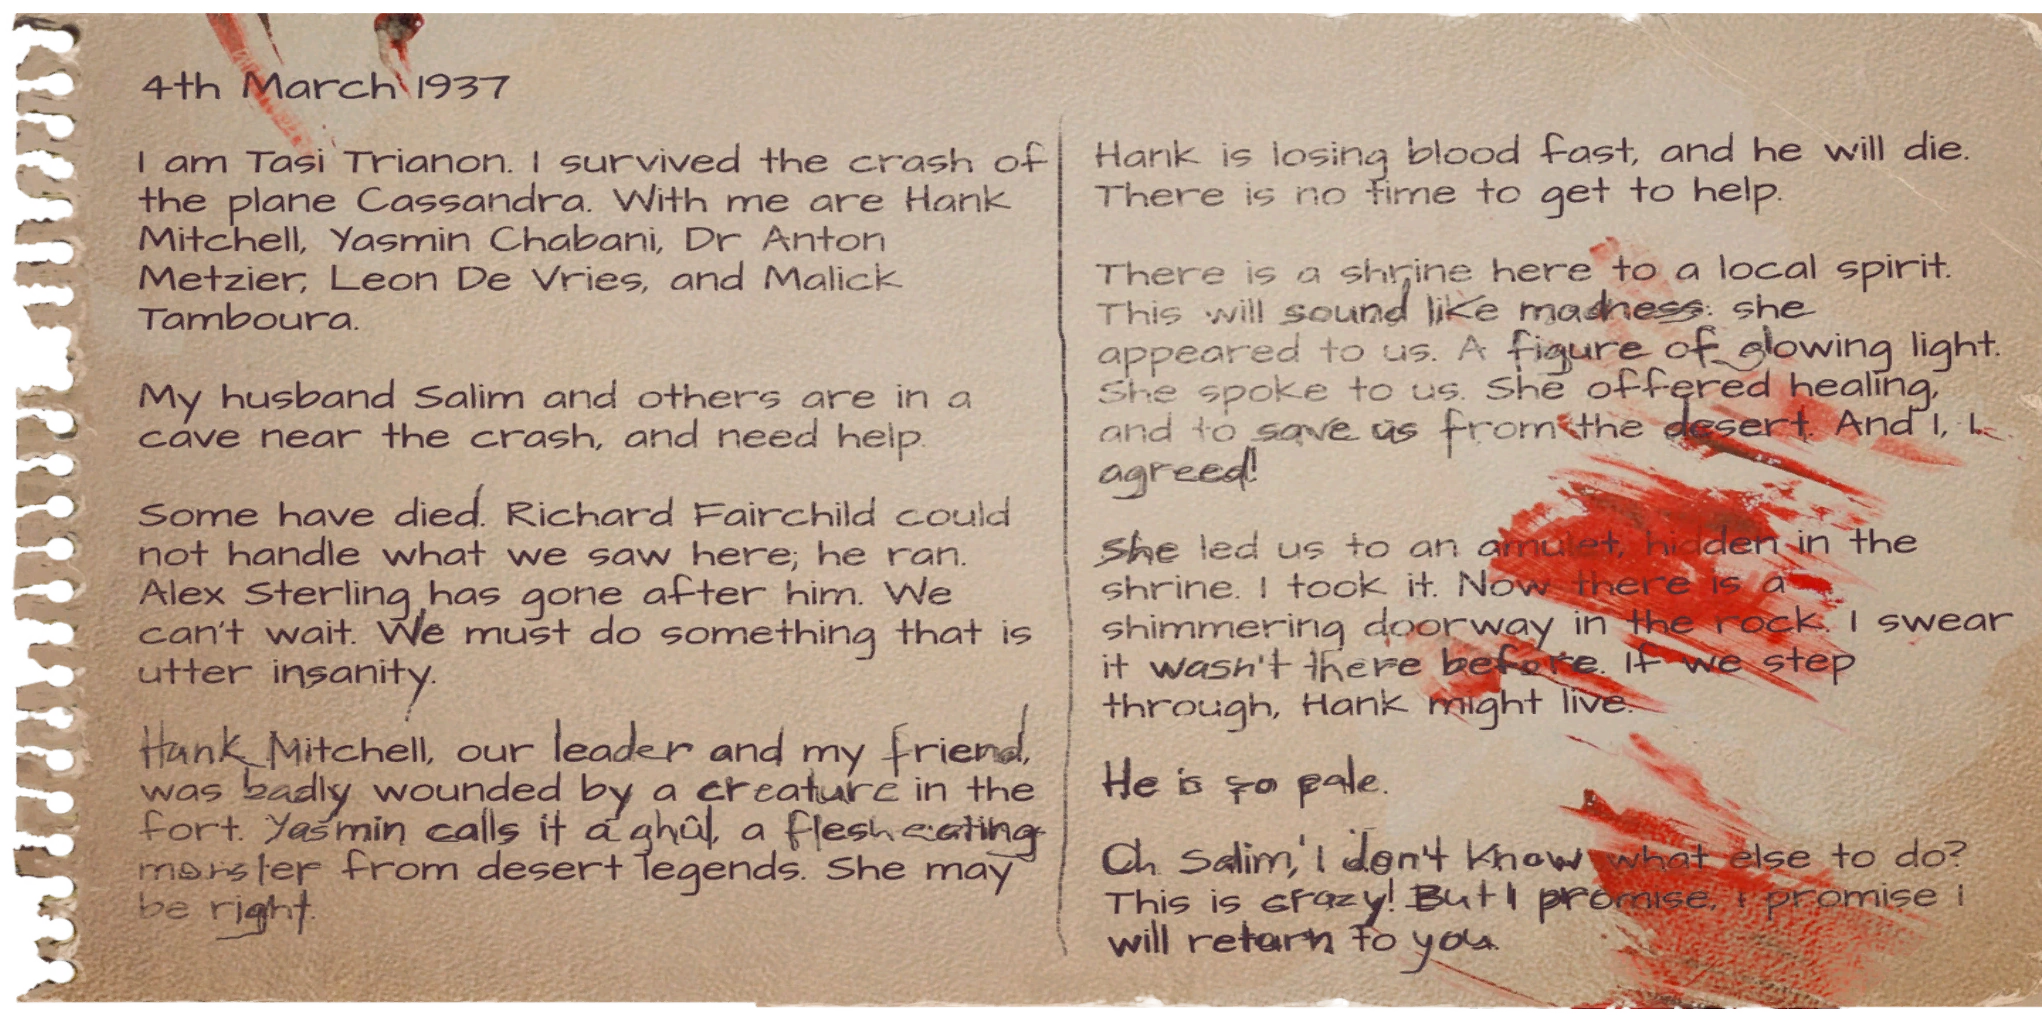 4th March 1937
I am Tasi Trianon. I survived the crash of
the plane Cassandra. With me are Hank
Mitchell, Yasmin Chabani, Dr Anton
Metzier, Leon De Vries, and Malick
Tamboura.
My husband Salim and others are in a
cave near the crash, and need help.
Some have died. Richard Fairchild could
not handle what we saw here; he ran.
Alex Sterling has gone after him. We
can't wait. We must do something that is
utter insanity.
Hank Mitchell, our leader and my friend,
was badly wounded by a creature in the
fort. Yasmin calls it a ghûl, a flesh eating
monster from desert legends. She may
be right.
Hank is losing blood fast, and he will die.
There is no time to get to help.
There is a shrine here to a local spirit.
This will sound like madness: she
appeared to us. A figure of glowing light.
She spoke to us. She offered healing,
and to save us from the desert. And I, I
agreed!
She led us to an amulet, hidden in the
shrine. I took it. Now there is a
shimmering doorway in the rock. I swear
it wasn't there before. If we step
through, Hank might live.
He is so pale.
Oh Salim, I don't know what else to do?
This is crazy! But I promise, I promise I
will return to you.